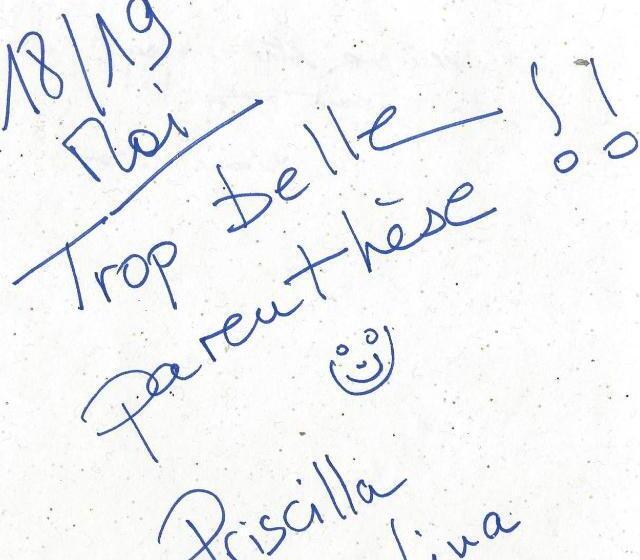 18/19
Mai
Trop belle !!
parenthèse
Priscilla